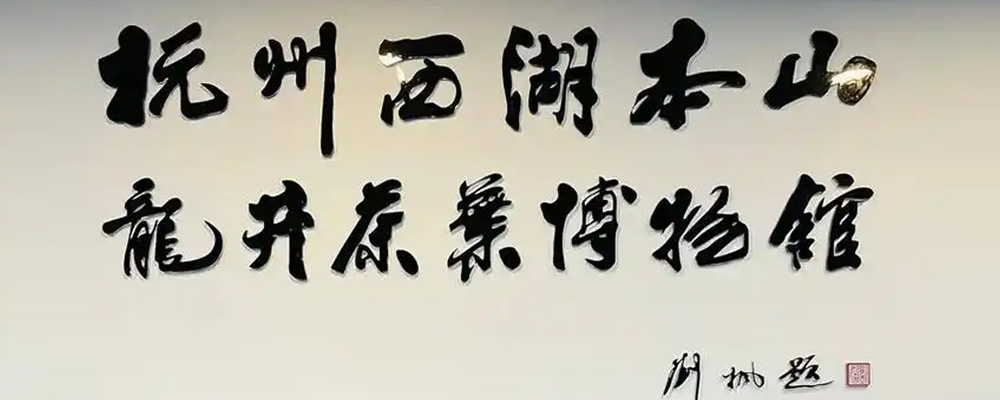 杭州西湖本山
龍井茶葉博物館
劉枫題